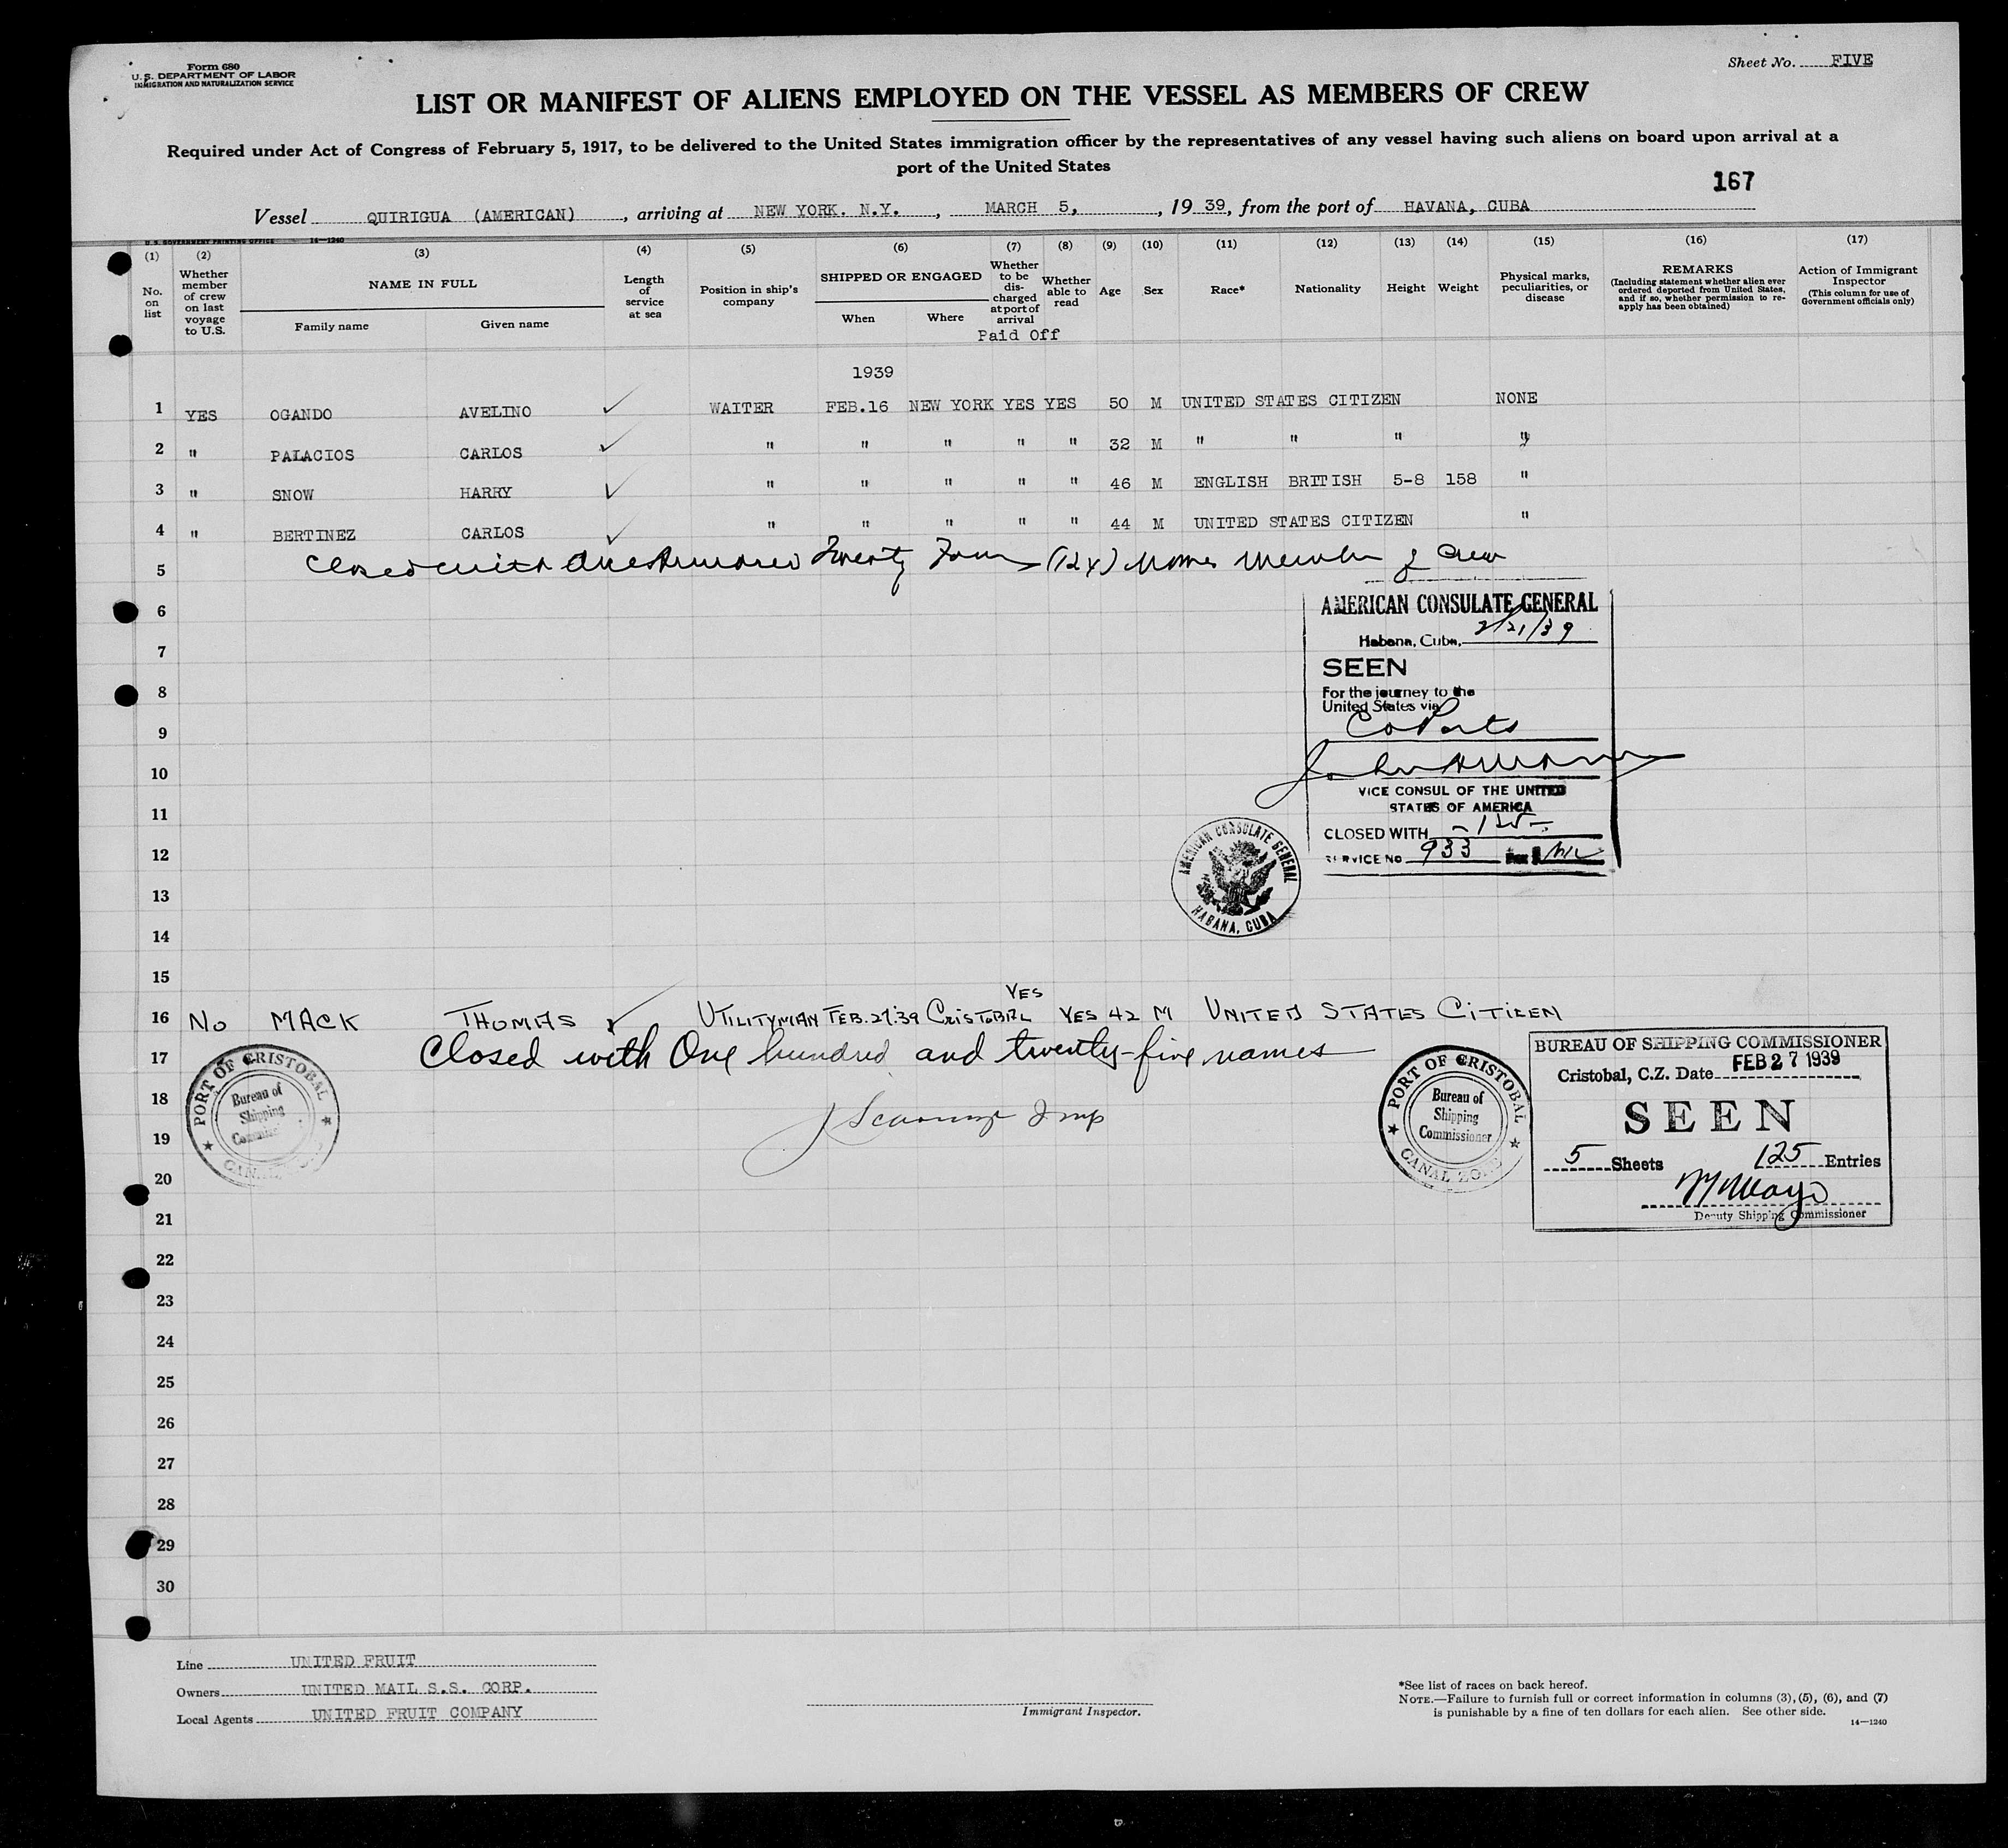 Form 680
U. S. DEPARTMENT OF LABOR
IMMIGRATION AND NATURALIZATION SERVICE
Sheet No. FIVE
LIST OR MANIFEST OF ALIENS EMPLOYED ON THE VESSEL AS MEMBERS OF CREW
Required under Act of Congress of February 5, 1917, to be delivered to the United States immigration officer by the representatives of any vessel having such aliens on board upon arrival at a
port of the United States
167
Vessel QUIRIGUA (AMERICAN), arriving at NEW YORK. N.Y., MARCH 5, , 19 39, from the port of HAVANA, CUBA
U. S. GOVERNMENT PRINTING OFFICE 14—1240
(1) (2) (3) (4) (5) (6) (7) (8) (9) (10) (11) (12) (13) (14) (15) (16) (17)
No. on list
Whether member of crew on last voyage to U.S.
NAME IN FULL
Family name
Given name
Length of service at sea
Position in ship's company
SHIPPED OR ENGAGED
When
Where
Whether to be discharged at port of arrival
Paid Off
Whether able to read
Age
Sex
Race*
Nationality
Height
Weight
Physical marks, peculiarities, or disease
REMARKS
(Including statement whether alien ever ordered deported from United States, and if so, whether permission to reapply has been obtained)
Action of Immigrant Inspector
(This column for use of Government officials only)
1939
1 YES OGANDO AVELINO ✓ WAITER FEB.16 NEW YORK YES YES 50 M UNITED STATES CITIZEN NONE
2 " PALACIOS CARLOS ✓ " " " " " 32 M " " " "
3 " SNOW HARRY ✓ " " " " " 46 M ENGLISH BRITISH 5-8 158 "
4 " BERTINEZ CARLOS ✓ " " " " " 44 M UNITED STATES CITIZEN "
5 Closed with One Hundred Twenty Four (124) Names Member of Crew
6
AMERICAN CONSULATE GENERAL
Habana, Cuba, 2/21/39
7
SEEN
8
For the journey to the
United States via
9
10
VICE CONSUL OF THE UNITED
STATES OF AMERICA
11
CLOSED WITH
12
SERVICE NO. 933
AMERICAN CONSULATE GENERAL
HABANA, CUBA
13
14
15
YES
16 No MACK THOMAS ✓ UTILITYMAN FEB.27.39 CRISTOBAL YES 42 M UNITED STATES CITIZEN
17 Closed with One hundred and twenty-five names
18
19
20
PORT OF CRISTOBAL
Bureau of
Shipping
CANAL
PORT OF CRISTOBAL
Bureau of
Shipping
Commissioner
CANAL ZONE
BUREAU OF SHIPPING COMMISSIONER
Cristobal, C.Z. Date FEB 27 1939
SEEN
5 Sheets 125 Entries
Deputy Shipping Commissioner
21
22
23
24
25
26
27
28
29
30
Line UNITED FRUIT
Owners UNITED MAIL S.S. CORP.
Local Agents UNITED FRUIT COMPANY
Immigrant Inspector.
*See list of races on back hereof.
NOTE.—Failure to furnish full or correct information in columns (3), (5), (6), and (7)
is punishable by a fine of ten dollars for each alien. See other side.
14—1240